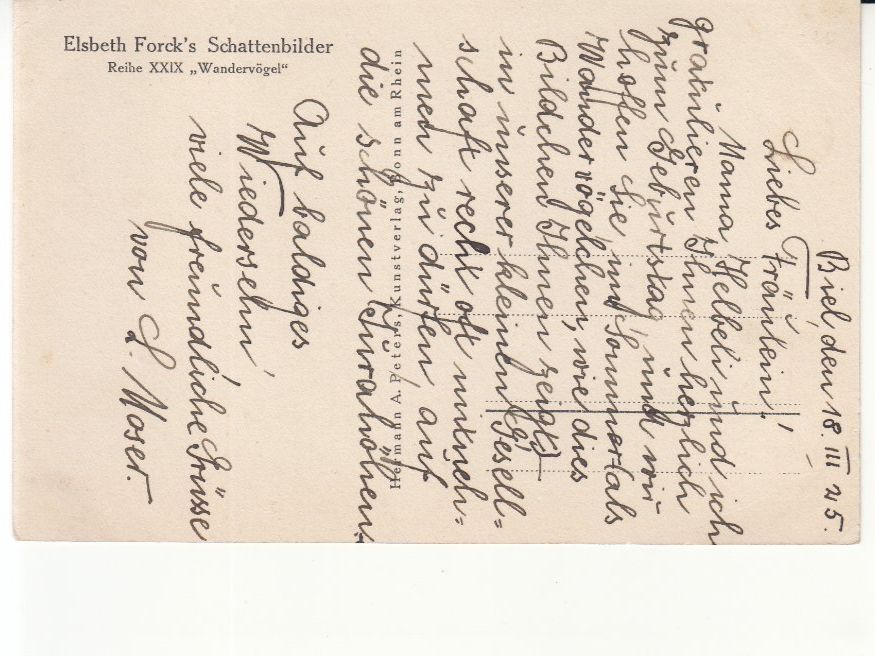 Elsbeth Forck's Schattenbilder
Reihe XXIX „Wandervögel“
Hermann A. Peters, Kunstverlag, Bonn am Rhein
Biel, den 18. III 25.
Liebes Fräulein!
Mama Helbeli und ich
gratulieren Ihnen herzlich
zum Geburtstag, und wir
hoffen Sie im Sommer als
Wandervögelchen, wie dies
Bildchen Ihnen zeigt,
in unserer kleinen Gesell=
schaft recht oft mitneh=
men zu dürfen auf
die schönen Jurahöhen.
Auf baldiges
Wiedersehn!
viele freundliche Grüsse
von L. Moser.